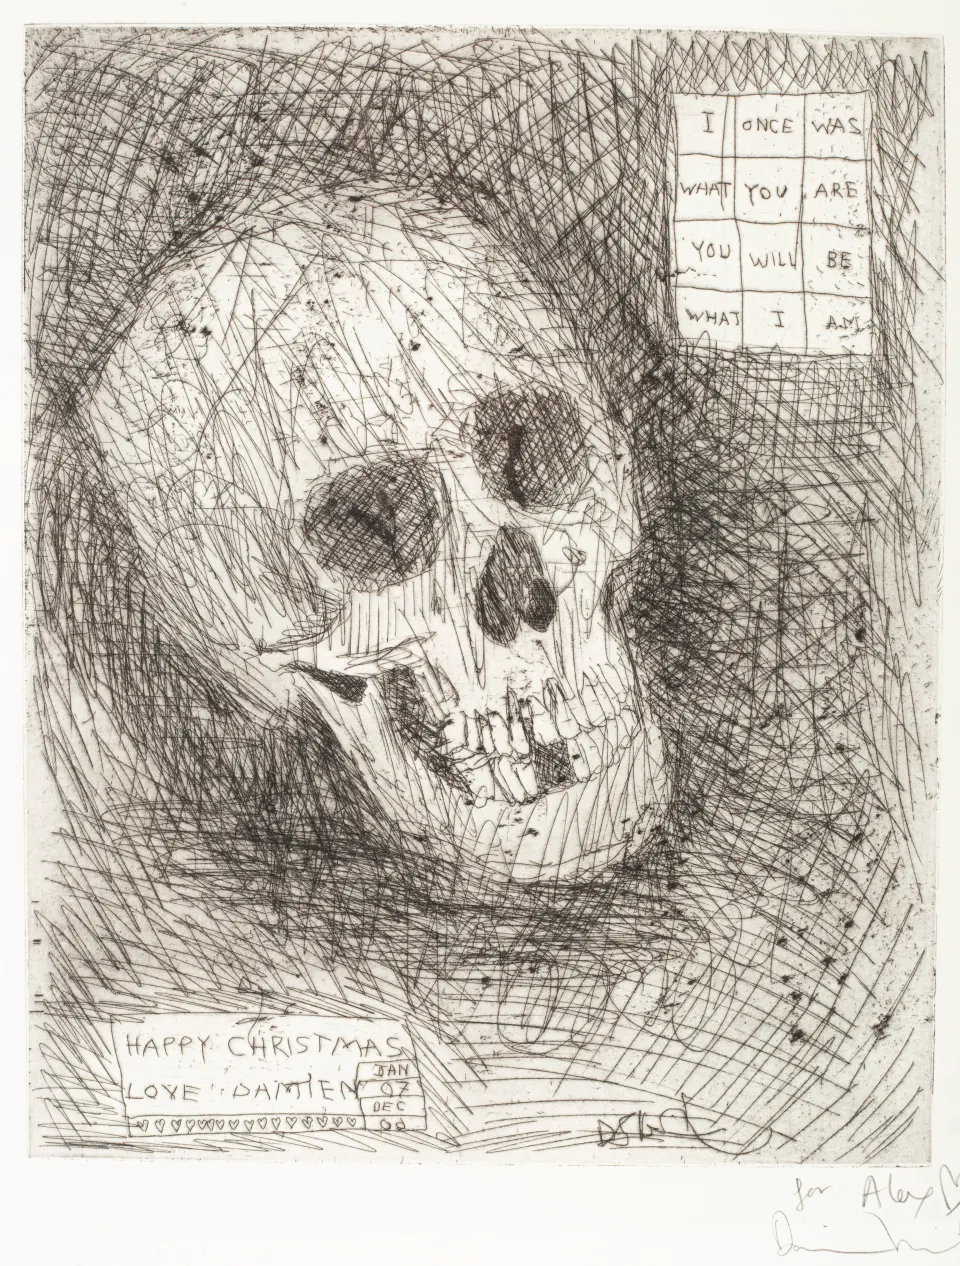 I ONCE WAS
WHAT YOU ARE
YOU WILL BE
WHAT I AM
HAPPY CHRISTMAS
LOVE DAMIEN
JAN
07
DEC
for Alex